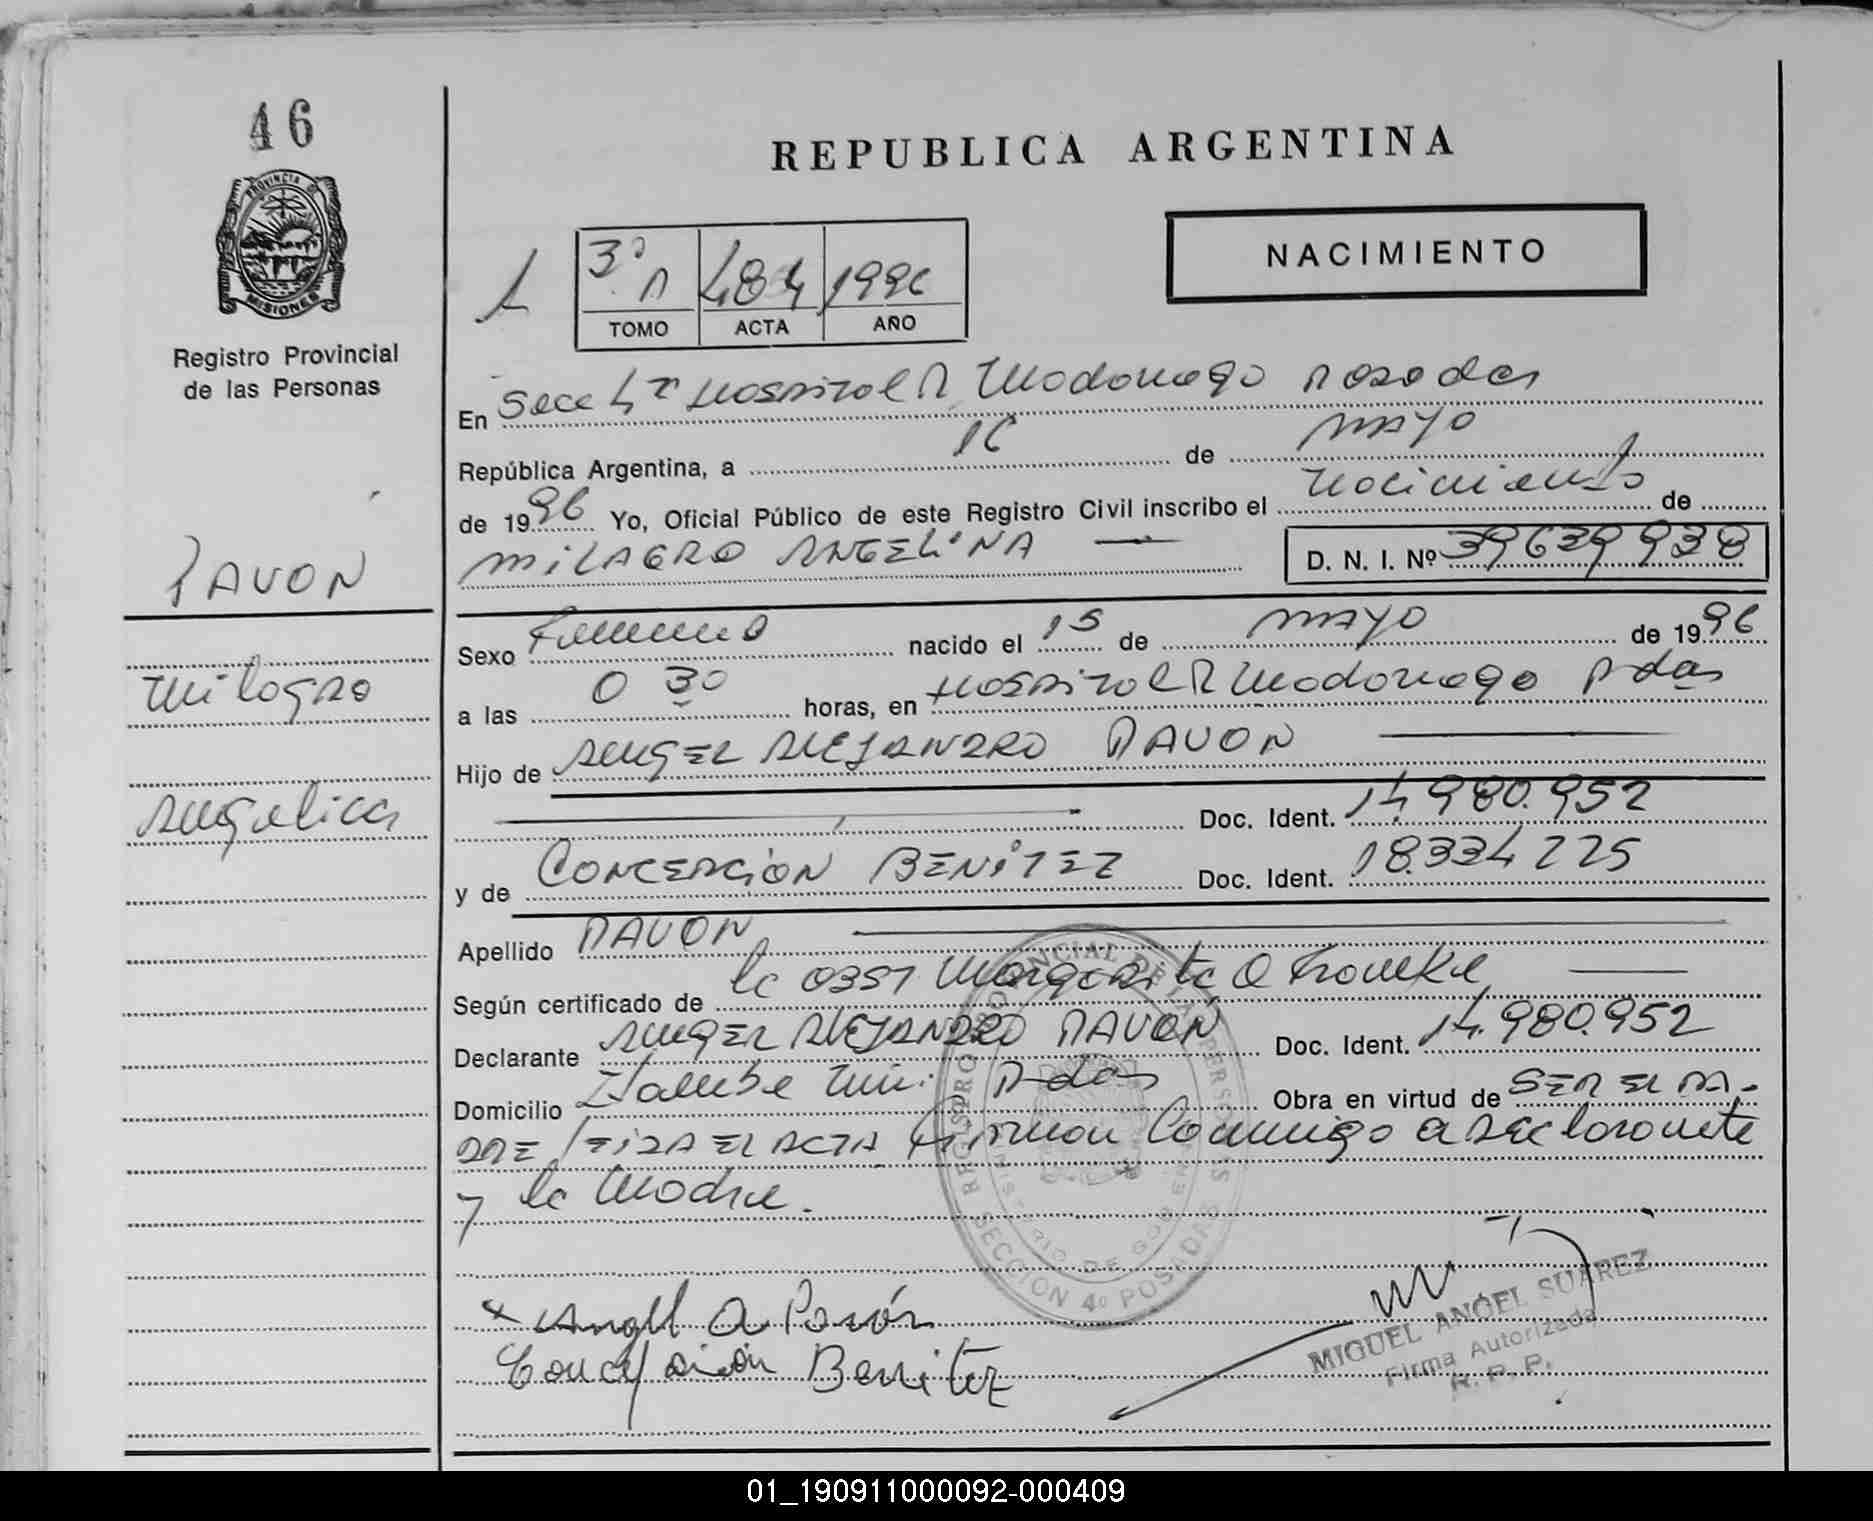 46
PROVINCIA DE
MISIONES
Registro Provincial
de las Personas
REPUBLICA ARGENTINA
NACIMIENTO
1
3º 484 1996
TOMO ACTA AÑO
En Secc 4ª Hospital R Madariaga Posadas
República Argentina, a 16 de MAYO
de 1996 Yo, Oficial Público de este Registro Civil inscribo el nacimiento de
MILAGRO ANGELINA D. N. I. Nº 39639938
PAVON
Sexo Femenino nacido el 15 de MAYO de 1996
Milagro
a las 0 30 horas, en Hospital R Madariaga Pdas
Hijo de ANGEL ALEJANDRO PAVON
Angelica
Doc. Ident. 14.980.952
y de CONCEPCION BENITEZ Doc. Ident. 18.334.225
Apellido PAVON
Según certificado de la Obst Margarita
Declarante ANGEL ALEJANDRO PAVON Doc. Ident. 14.980.952
Domicilio Itaembe Mini Pdas Obra en virtud de SER EL PA-
DRE LEIDA EL ACTA Firman Conmigo el Declarante
y la Madre.
REGISTRO PROVINCIAL DE LAS PERSONAS
MINISTERIO DE GOB
SECCION 4º POSADAS
Angel A Pavón
Concepción Benitez
MIGUEL ANGEL SUAREZ
Firma Autorizada
R. P. P.
01_190911000092-000409